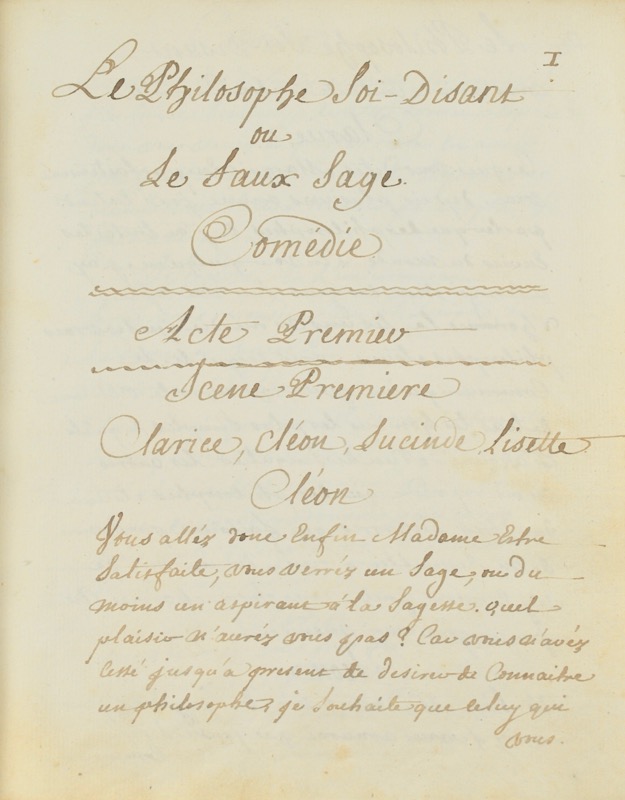 1
Le Philosophe Soi-Disant
ou
Le Faux Sage.
Comédie
Acte Premier
Scene Premiere
Clarice, Cléon, Lucinde, Lisette
Cléon
Vous alléz donc Enfin Madame Estre
Satisfaite, vous verréz un Sage, ou du
moins un aspirant á la Sagesse. quel
plaisir n'auréz vous pas? Car vous n'avéz
Cessé jusqu'a present de desirer de Connaitre
un philosophe, je Souhaite que celuy qui
vous.